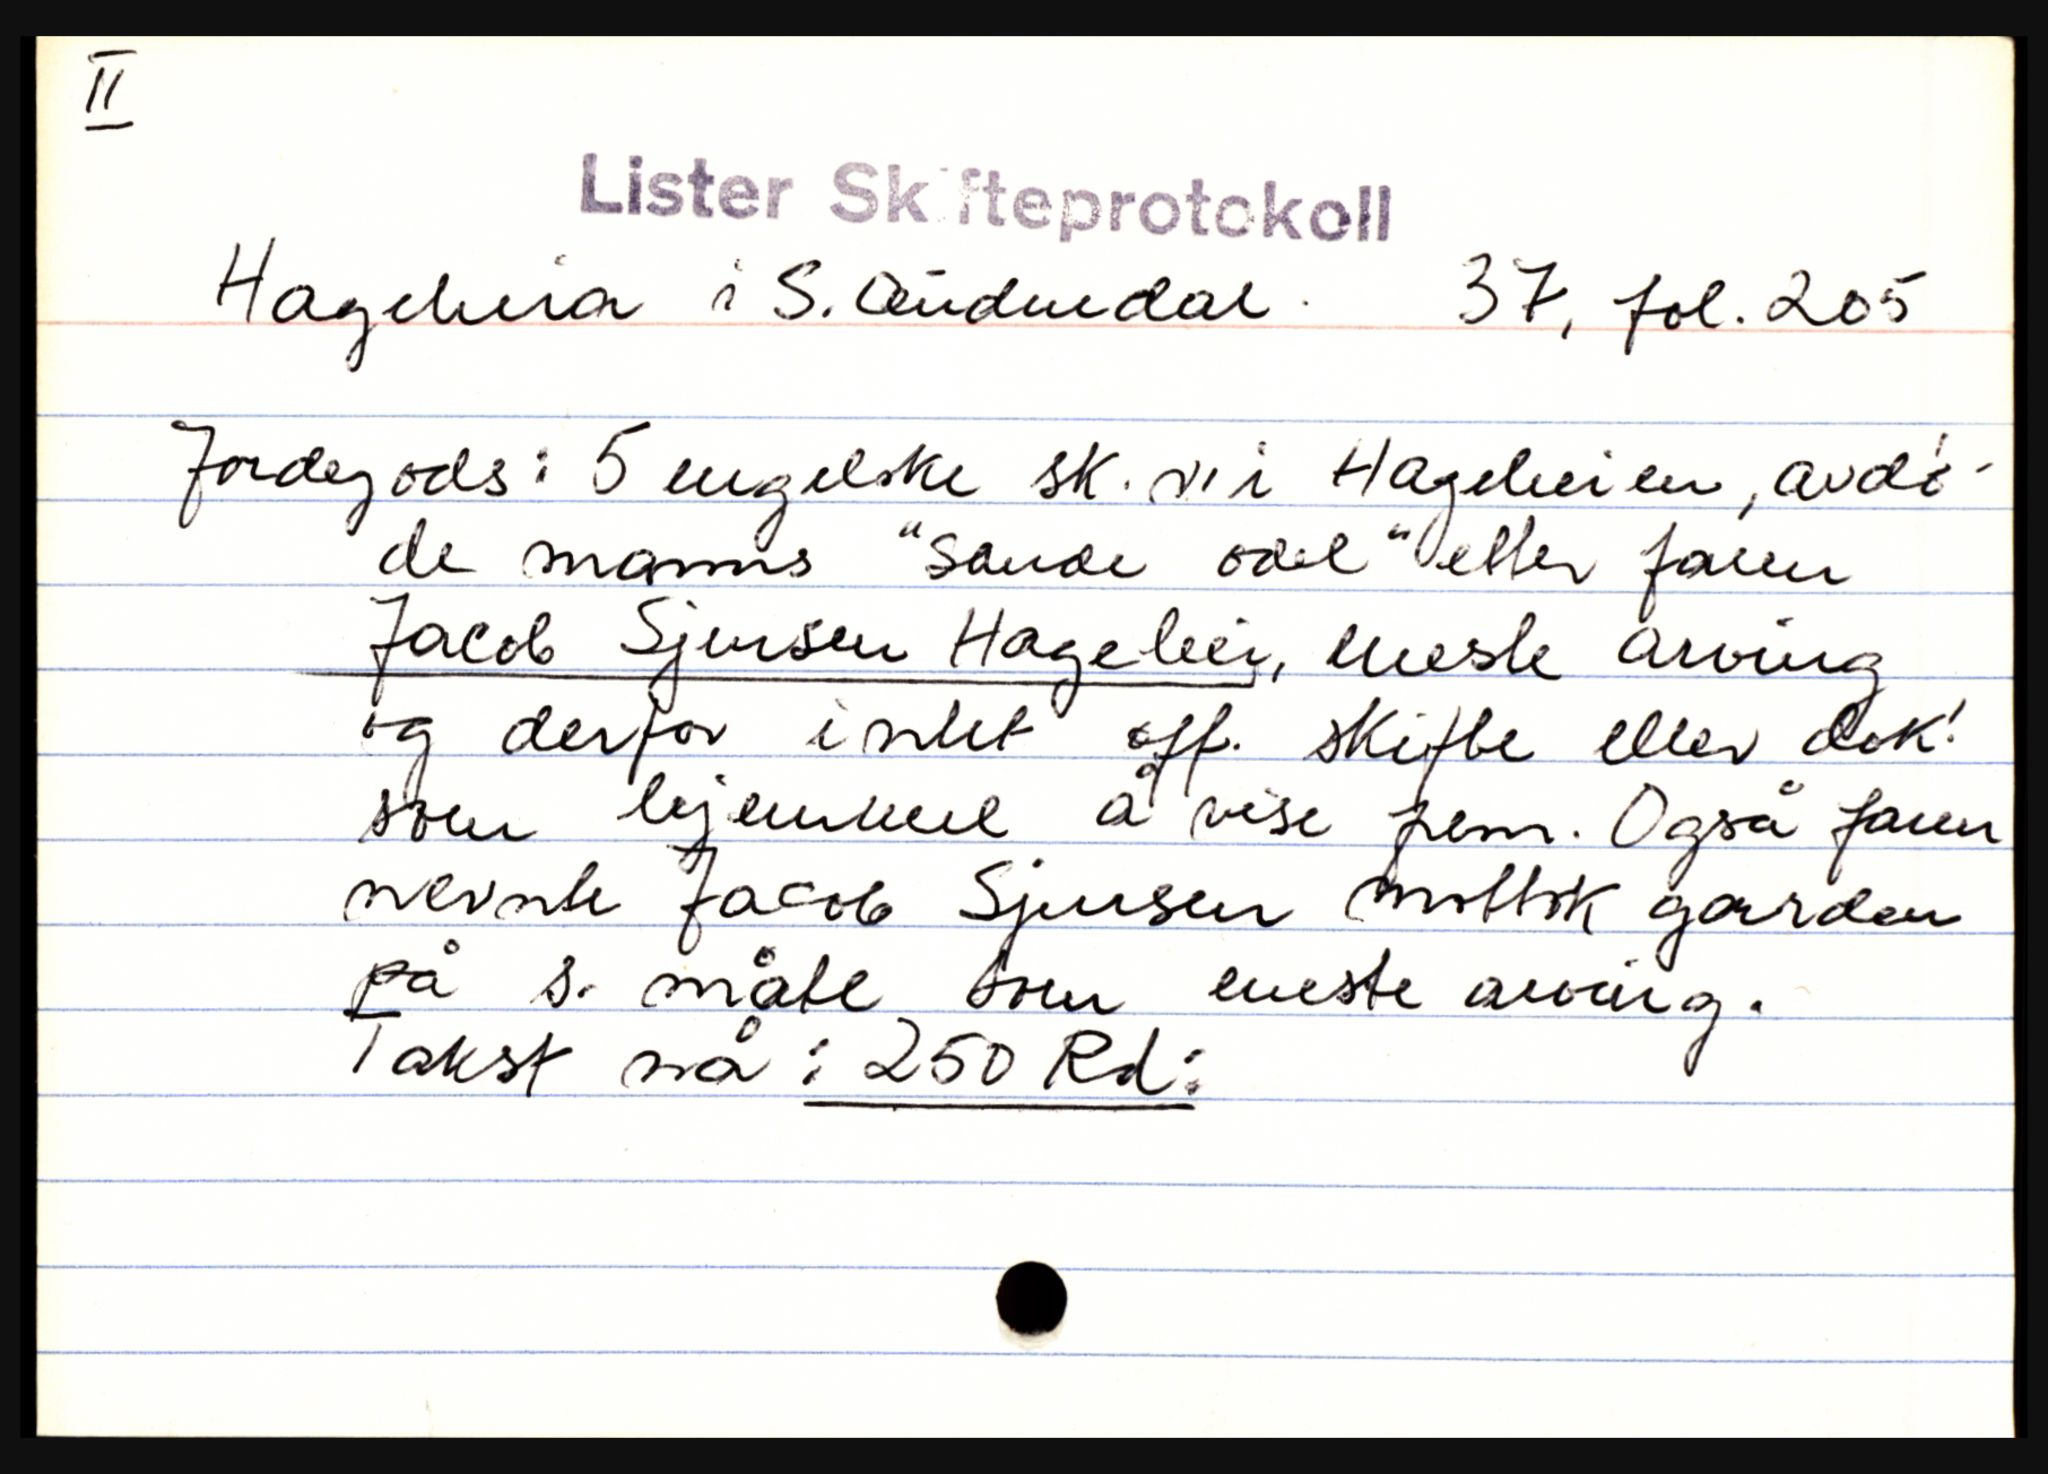 II
Lister Skifteprotokoll
Hageheia i S. Audnedal. 37, fol. 205
Jordegods: 5 engelske sk. i Hageheien, avdø-
de manns "sande odel" etter faren
Jacob Sjursen Hagehei, eneste arving
og derfor intet off. skifte eller dok!
som hjemmel å vise frem. Også faren
nevnte Jacob Sjursen mottok garden
på s. måte som eneste arving.
Takst nå: 250 Rd: